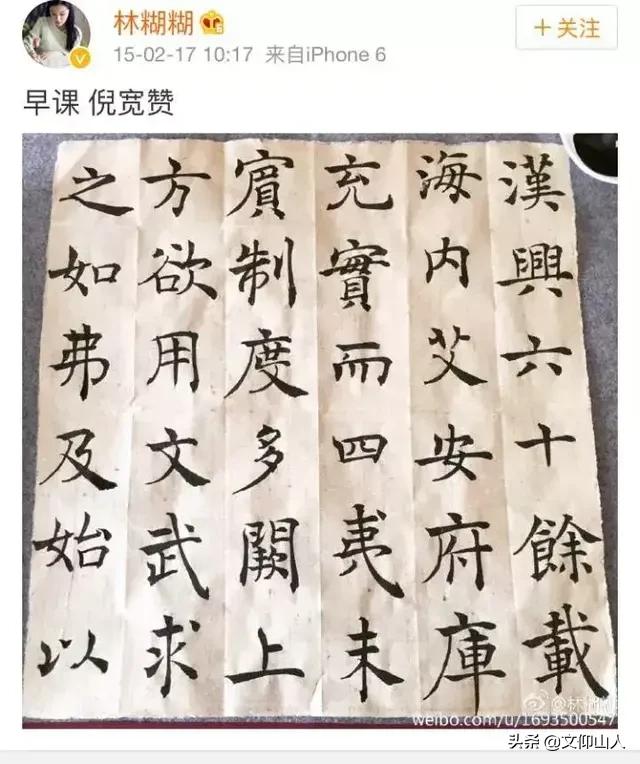 林糊糊
15-02-17 10:17 来自iPhone 6
+关注
早课 倪宽赞
漢興六十餘載
海内艾安府庫
充實而四夷未
賔制度多闕上
方欲用文武求
之如弗及始以
weibo.com/u/1693500547
头条@文仰山人